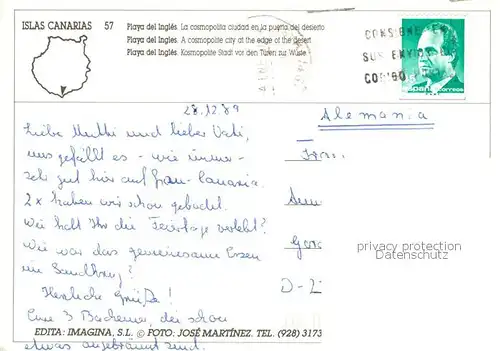 ISLAS CANARIAS 57
Playa del Inglés. La cosmopolita ciudad en la puerta del desierto
Playa del Inglés. A cosmopolite city at the edge of the desert
Playa del Inglés. Kosmopolite Stadt vor den Türen zur Wüste
CONSIGNE EN
SUS ENVIOS EL
CODIGO
correos
28.12.89
Liebe Mutti und lieber Vati,
uns gefällt es - wie immer -
sehr gut hier auf Gran-Canaria.
2 x haben wir schon gebadet.
Wie habt Ihr die Feiertage verlebt?
Wie war das gemeinsame Essen
im Sandkrug?
Herzliche Grüße!
Eure 3 Bachema, die schon
etwas angebrannt sind.
Alemania
Frau
D-2
privacy protection
Datenschutz
EDITA: IMAGINA, S.L. © FOTO: JOSÉ MARTÍNEZ. TEL. (928) 3173